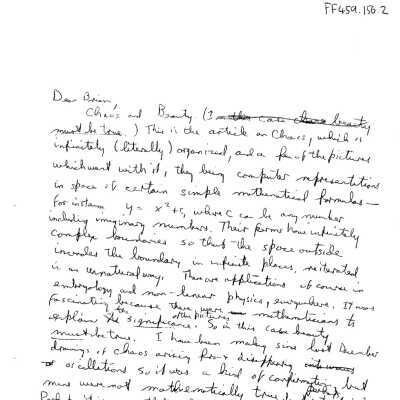 FF459.156.2
Dear Brian,
Chaos and Beauty (In the case beauty
must be true.) This is the article on Chaos, which is
infinitely (literally) organized, and a few of the pictures
which went with it, they being computer representations
in space of certain simple mathematical formulas —
For instance y = x²+c, where c can be any number
including imaginary numbers. Their forms have infinitely
complex boundaries so that the space outside
invades the boundary in infinite places, reiterated
in an unnatural way. There are applications of course in
embryology and non-linear physics, everywhere. It was
fascinating because there were mathematicians to
explain the significance of the pictures. So in this case beauty
must be true. I have been making since last December
drawings of chaos arising from & disappearing
oscillations so it was a kind of confirmation, but
mine were not mathematically true